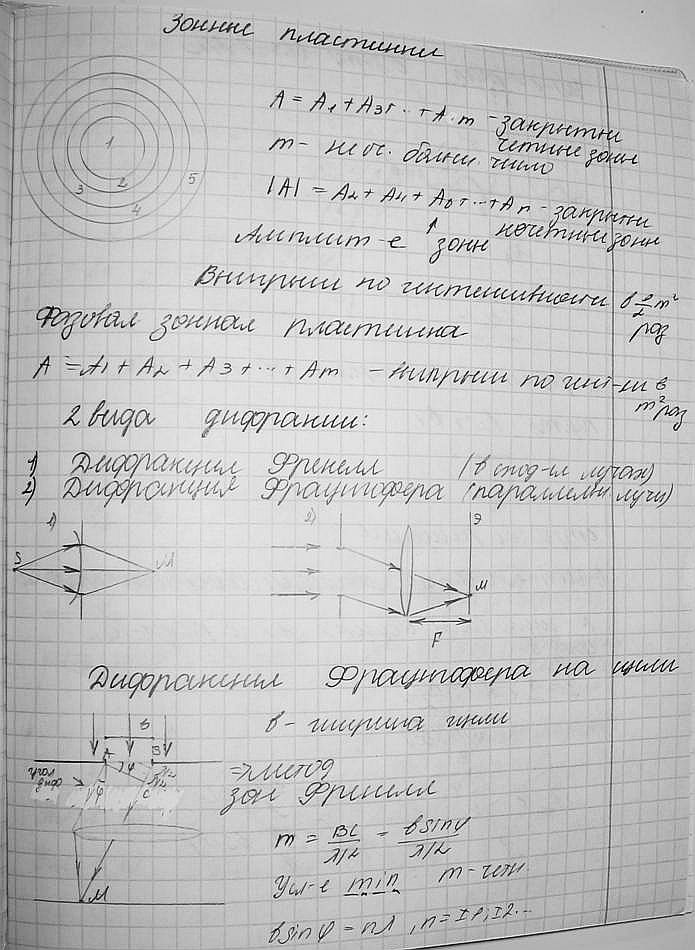 Зонные пластинки
1
2
3
4
5
A = A1 + A3 + ... + Am - закрыты
четные зоны
m - неч. больш. число
|A| = A2 + A4 + A6 + ... + An - закрыты
нечетные зоны
Амплит-е ↑ зоны
Выигрыш по интенсивности в m²
раз
Фазовая зонная пластинка
A = A1 + A2 + A3 + ... + Am - выигрыш по инт-ти в
m² раз
2 вида дифракции:
1) Дифракция Френеля (в сход-ся лучах)
2) Дифракция Фраунгофера (параллельн лучи)
1)
S
M
2)
Э
M
F
Дифракция Фраунгофера на щели
в - ширина щели
в
A
B
φ
λ/2
C
угол
диф
φ
M
=> метод
зон Френеля
m = BC / λ/2 = вsinφ / λ/2
Усл-е min m - четн
вsinφ = nλ, n = ±1, ±2...